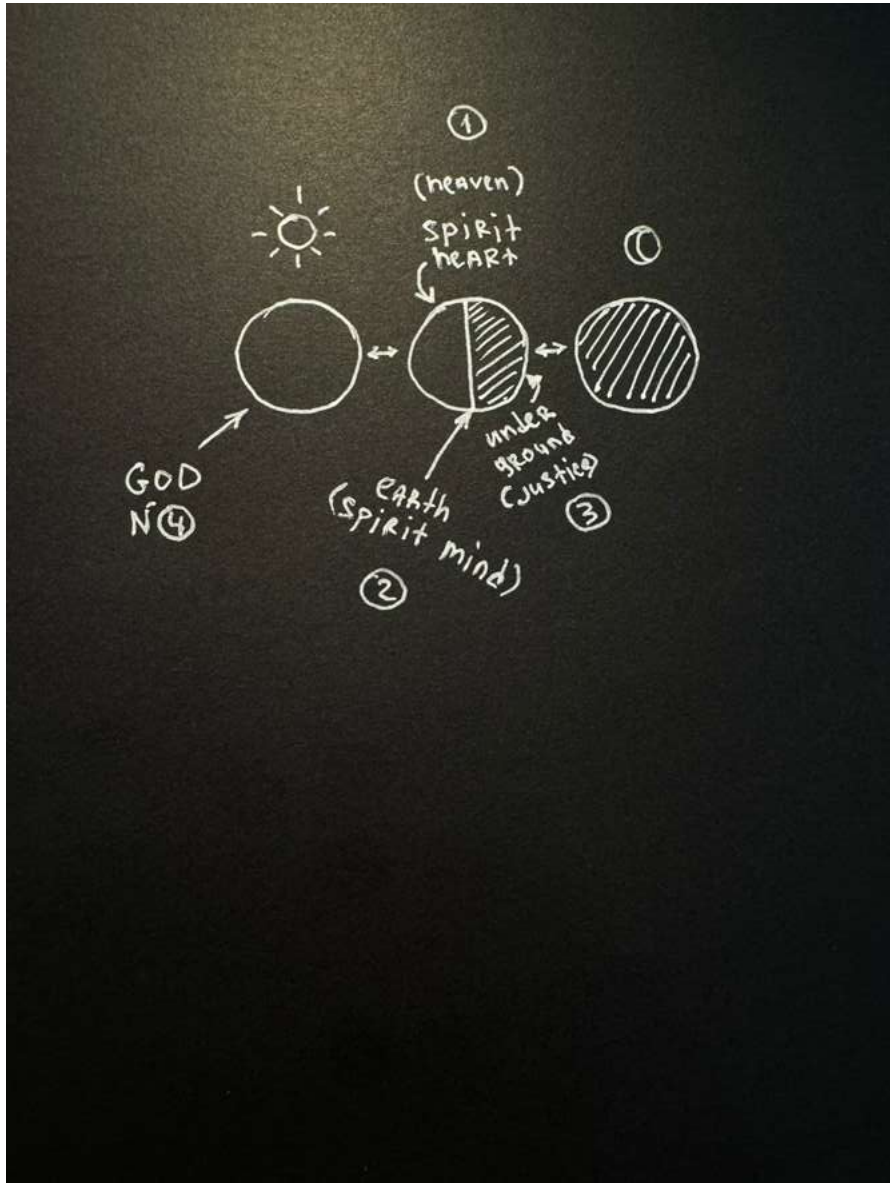 1
(heaven)
spirit
heart
GOD
N 4
earth
(spirit mind)
2
under
ground
(Justice)
3